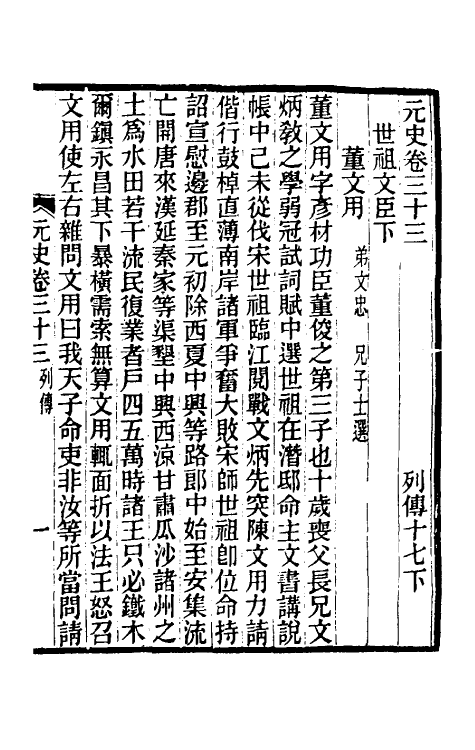 元史卷三十三 列傳十七下
世祖文臣下
董文用 弟文忠 兄子士選
董文用字彥材功臣董俊之第三子也十歲喪父長兄文
炳敎之學弱冠試詞賦中選世祖在潛邸命主文書講說
帳中己未從伐宋世祖臨江閱戰文炳先突陳文用力請
偕行鼓棹直薄南岸諸軍爭奮大敗宋師世祖卽位命持
詔宣慰邊郡至元初除西夏中興等路郎中始至安集流
亡開唐來漢延秦家等渠墾中興西涼甘肅瓜沙諸州之
土爲水田若干流民復業者戶四五萬時諸王只必鐵木
爾鎭永昌其下暴橫需索無算文用輒面折以法王怒召
文用使左右雜問文用曰我天子命吏非汝等所當問請
元史卷三十三 列傳 一